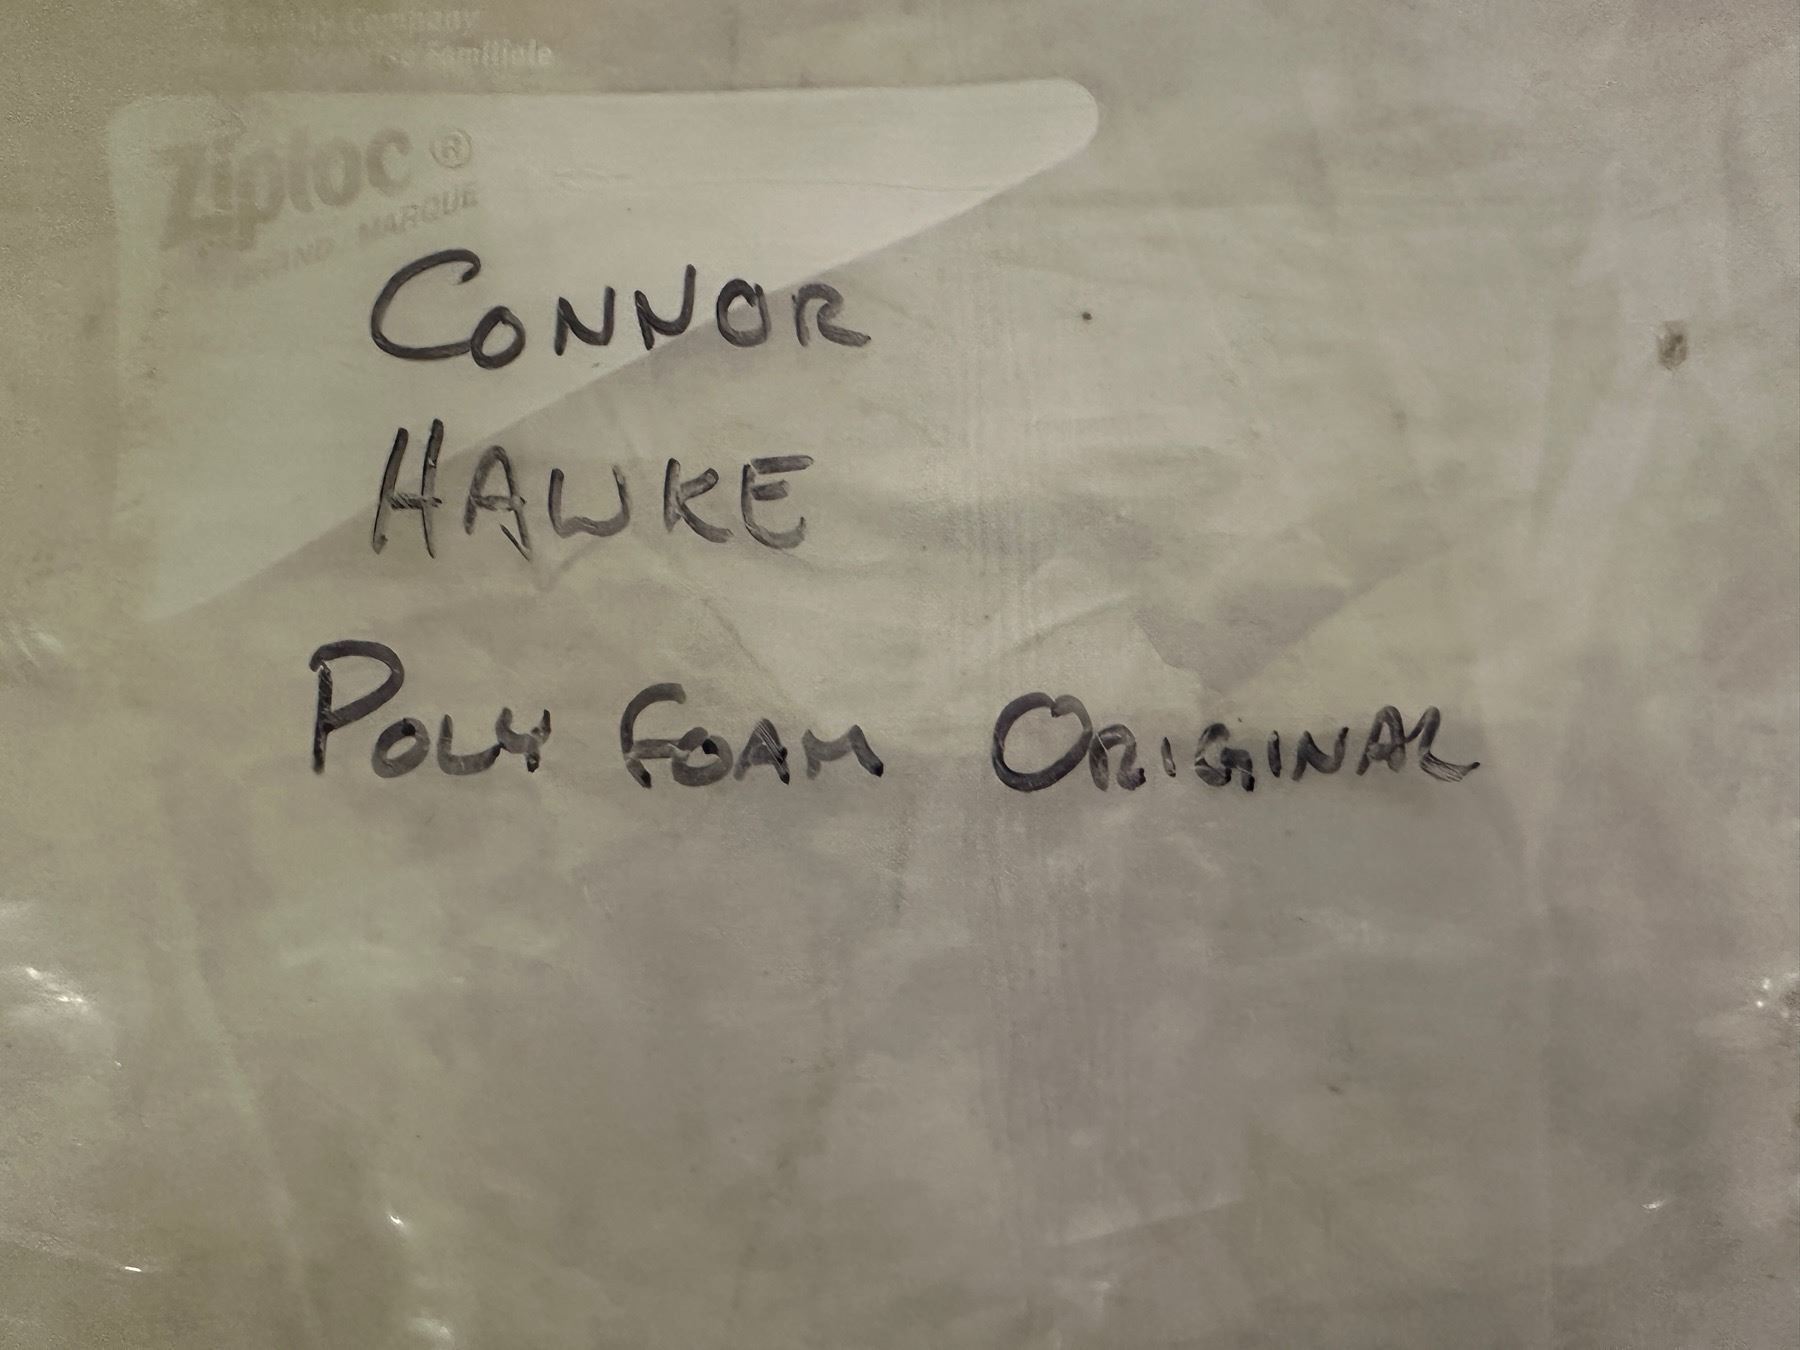 Company
Ziploc®
BRAND MARQUE
CONNOR
HAWKE
POLY FOAM ORIGINAL